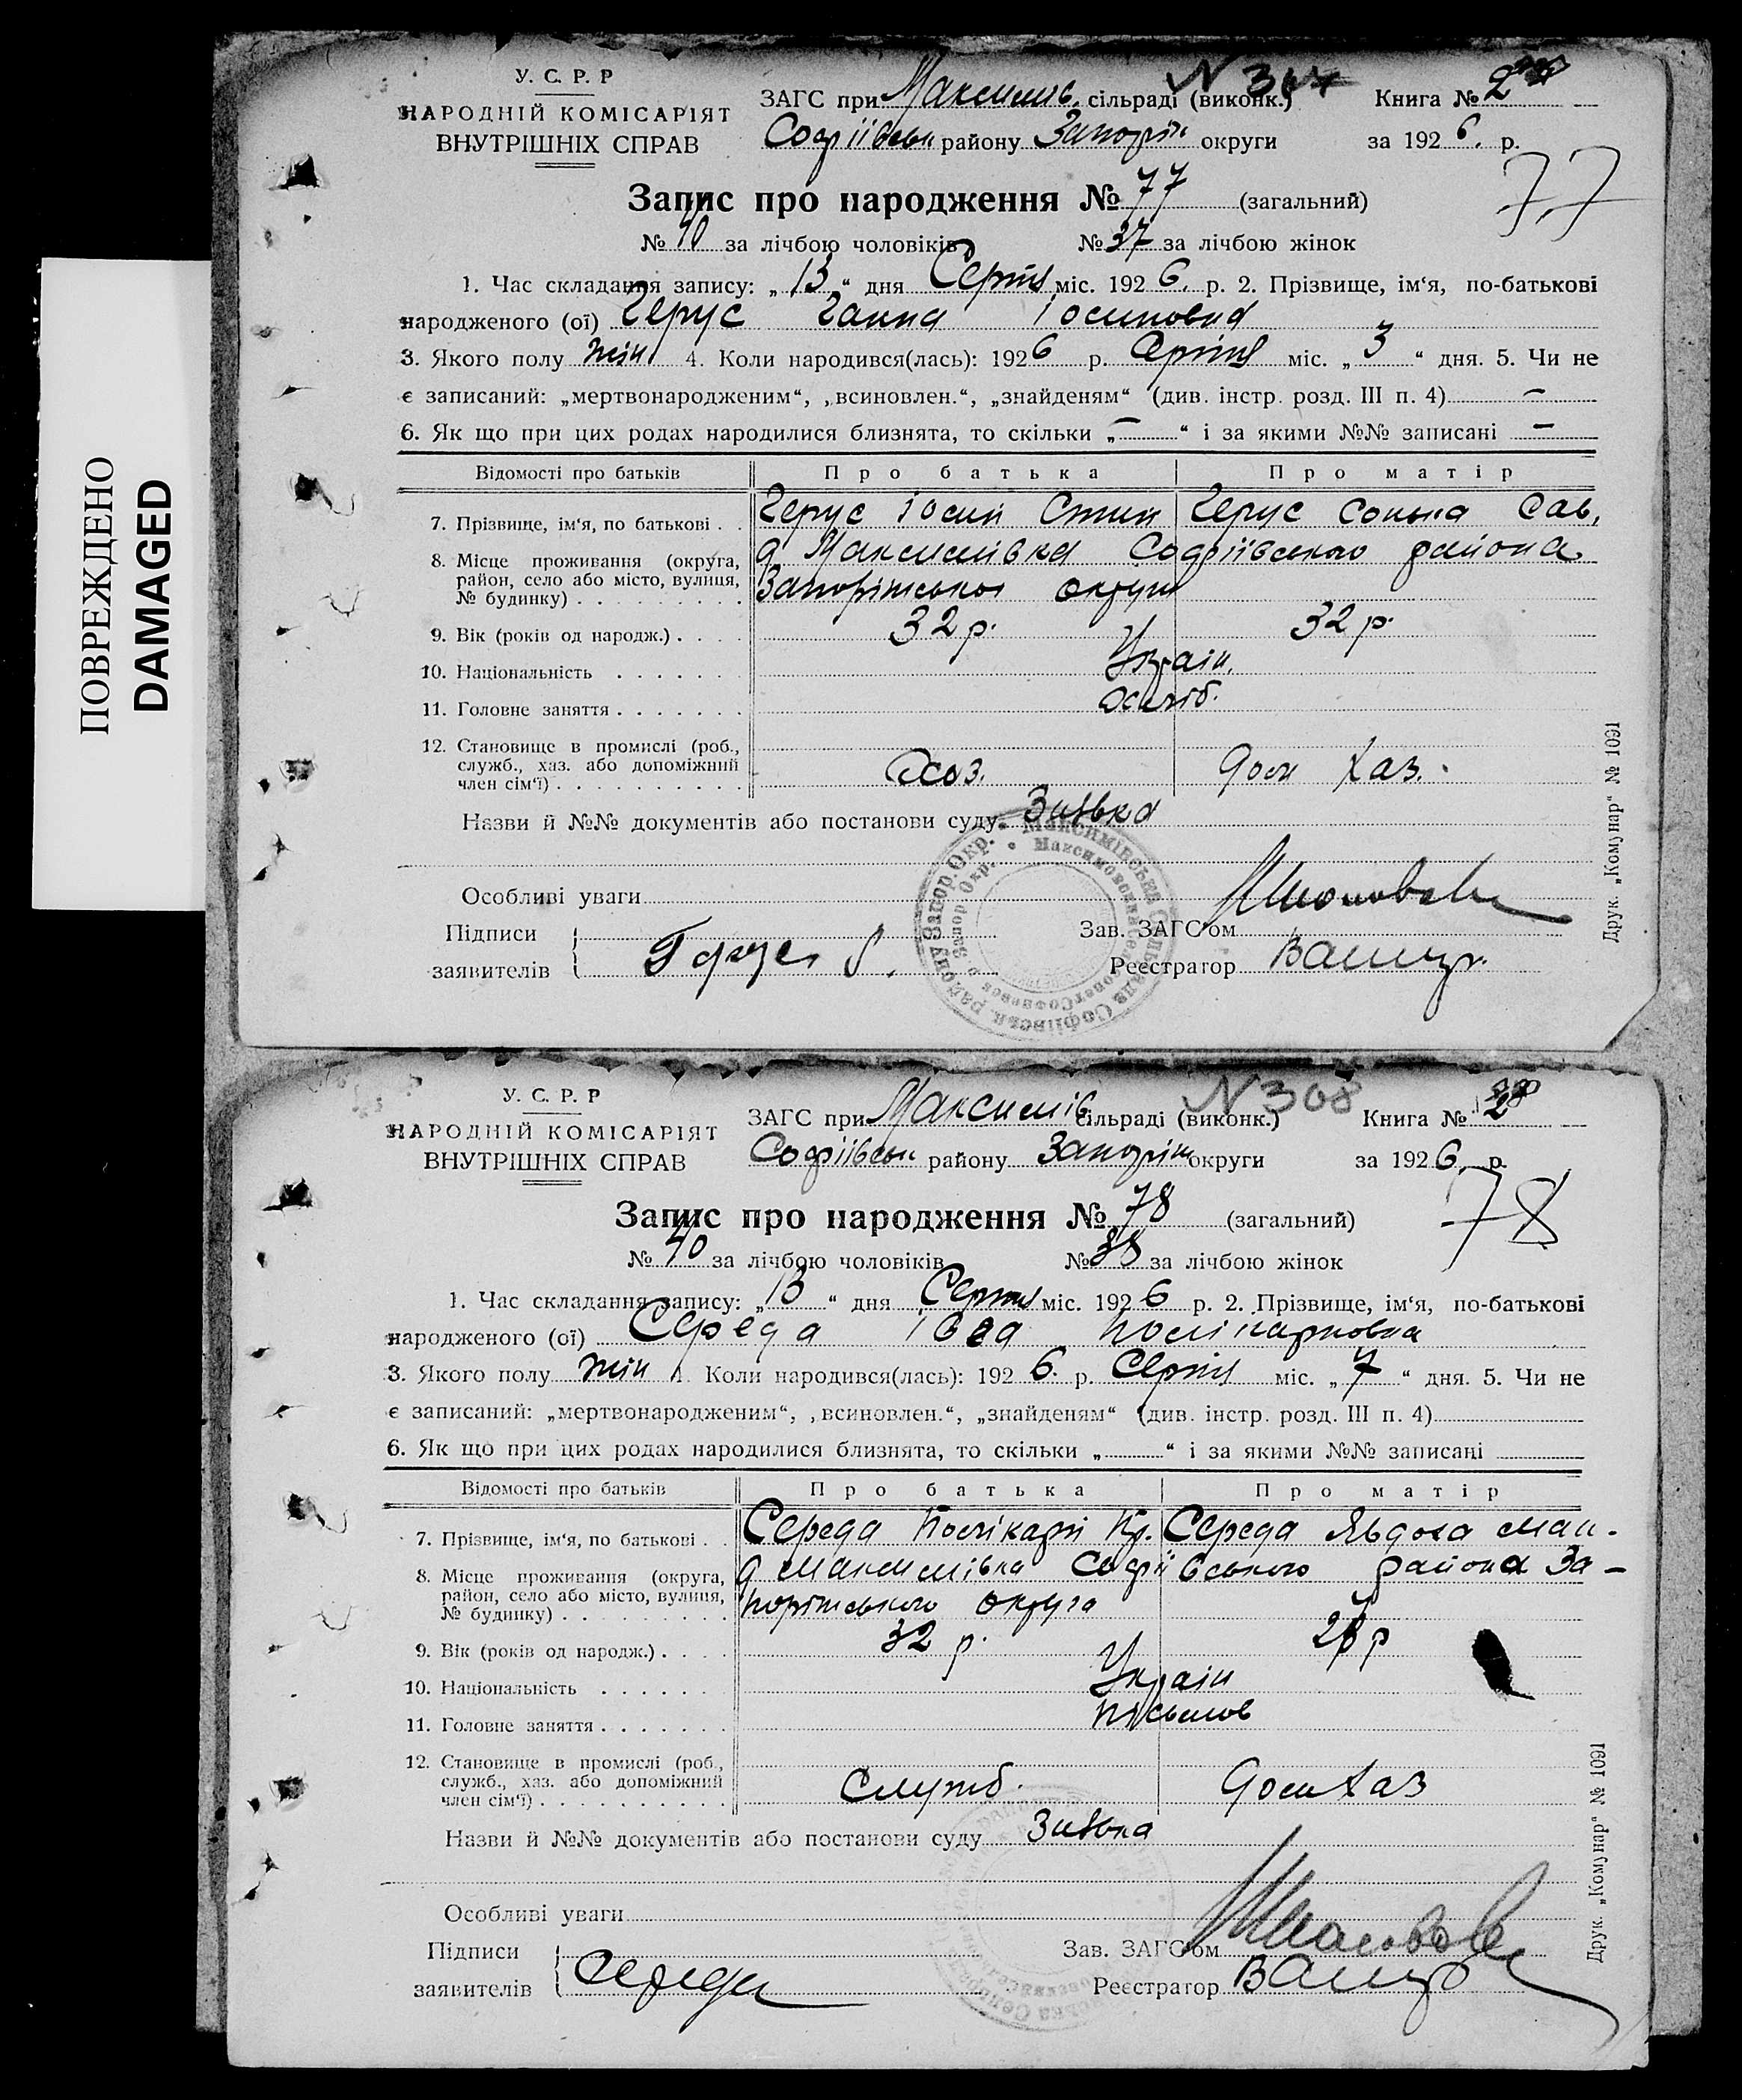 ПОВРЕЖДЕНО
DAMAGED
У. С. Р. Р
НАРОДНІЙ КОМІСАРІЯТ
ВНУТРІШНІХ СПРАВ
ЗАГС при Максимів. сільраді (виконк.)
N 307
Книга № 2
Софіївськ району Запоріж округи за 1926. р.
77
Запис про народження № 77 (загальний)
№ 40 за лічбою чоловіків № 37 за лічбою жінок
1. Час складання запису: „13“ дня Серпня міс. 1926. р. 2. Прізвище, ім‘я, по-батькові
народженого (ої) Герус Ганна Іосиповна
3. Якого полу жін. 4. Коли народився(лась): 1926 р. Серпня міс. „3“ дня. 5. Чи не
є записаний: „мертвонародженим“, „всиновлен.“, „знайденям“ (див. інстр. розд. III п. 4) —
6. Як що при цих родах народилися близнята, то скільки „—“ і за якими №№ записані —
Відомості про батьків Про батька Про матір
7. Прізвище, ім‘я, по батькові . . Герус Іосип Герус Сав.
8. Місце проживання (округа, район, село або місто, вулиця, № будинку) . . . . . . . . .
д Максимівка Софіївського района
Запоріжського округи
9. Вік (років од народж.) . . . . 32 р. 32 р.
10. Національність . . . . . . . Україн.
11. Головне заняття . . . . . . . хліб.
12. Становище в промислі (роб., служб., хаз. або допоміжний член сім‘ї) . . . . . . . . . .
хаз.
Назви й №№ документів або постанови суду Заявка
Особливі уваги
Підписи
заявителів
Зав. ЗАГС‘ом
Реєстратор
Друк. „Комунар“ № 1091
У. С. Р. Р
НАРОДНІЙ КОМІСАРІЯТ
ВНУТРІШНІХ СПРАВ
ЗАГС при Максимів сільраді (виконк.)
N 308
Книга № 2
Софіївськ району Запоріж округи за 1926. р.
78
Запис про народження № 78 (загальний)
№ 40 за лічбою чоловіків № 38 за лічбою жінок
1. Час складання запису: „13“ дня Серпня міс. 1926 р. 2. Прізвище, ім‘я, по-батькові
народженого (ої) Середа Полікарповна
3. Якого полу жін 4. Коли народився(лась): 1926. р. Серпня міс. „7“ дня. 5. Чи не
є записаний: „мертвонародженим“, „всиновлен.“, „знайденям“ (див. інстр. розд. III п. 4)
6. Як що при цих родах народилися близнята, то скільки „ “ і за якими №№ записані
Відомості про батьків Про батька Про матір
7. Прізвище, ім‘я, по батькові . . Середа Полікарп Середа Явдоха
8. Місце проживання (округа, район, село або місто, вулиця, № будинку) . . . . . . . . .
д Максимівка Софіївського района За-
поріжського округа
9. Вік (років од народж.) . . . . 32 р.
10. Національність . . . . . . Україн
11. Головне заняття . . . . . . .
12. Становище в промислі (роб., служб., хаз. або допоміжний член сім‘ї) . . . . . . . . . .
Служб.
Назви й №№ документів або постанови суду Заявка
Особливі уваги
Підписи
заявителів Середа
Зав. ЗАГС‘ом
Реєстратор
Друк. „Комунар“ № 1091